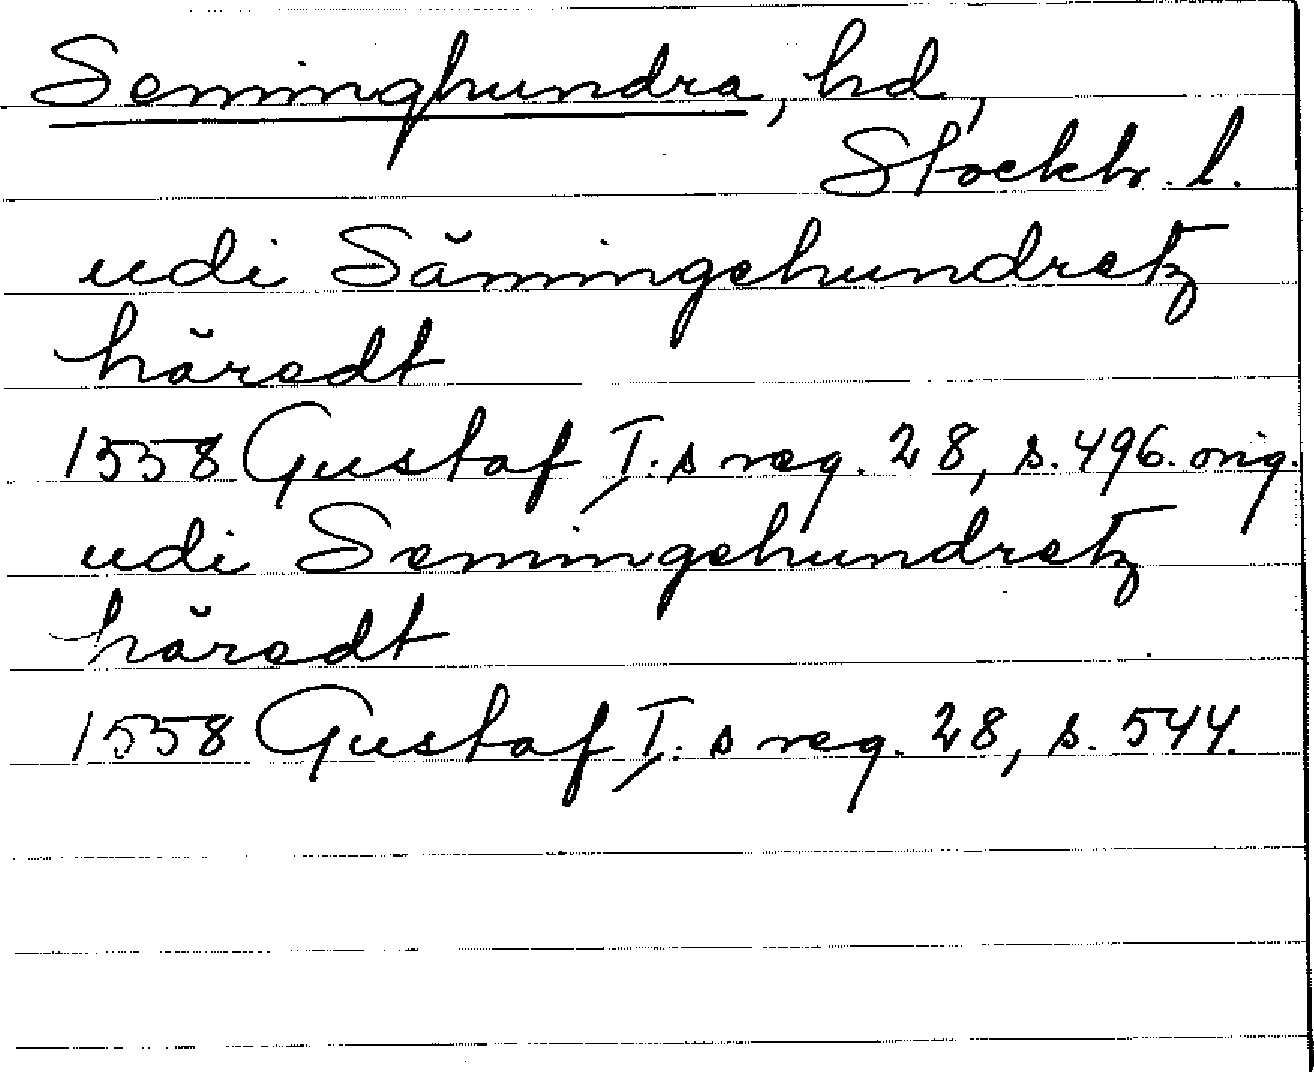 Seminghundra, hd,
Stockh. l.
udi Sämingehundretz
häredt
1558 Gustaf I:s reg. 28, s. 496. orig.
udi Semingehundretz
häredt
1558 Gustaf I:s reg. 28, s. 544.